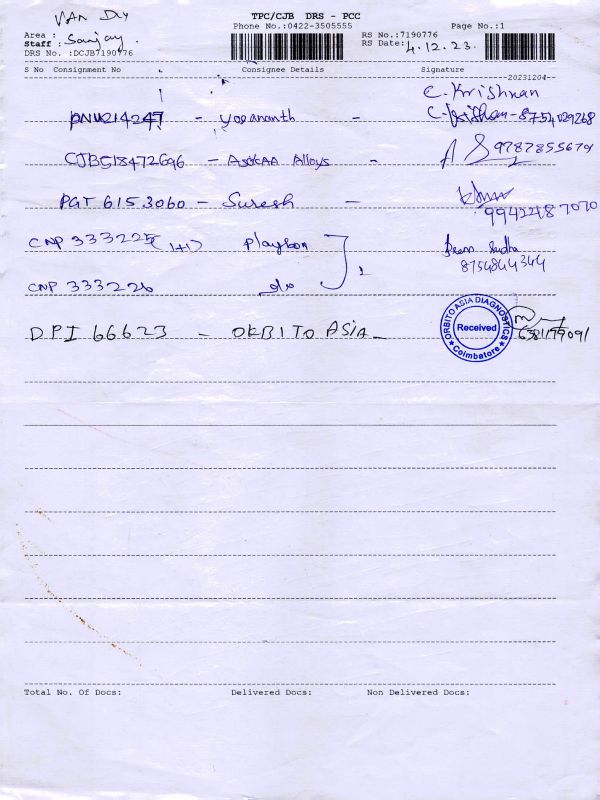 VAN Dly
TPC/CJB DRS - PCC
Area :
Phone No.:0422-3505555
Page No.:1
Staff : Sanjay
RS No.:7190776
RS Date: 4.12.23.
DRS No. :DCJB7190776
S No Consignment No Consignee Details Signature
20231204
C. Krishnan
PNV214247 - Yogananth - C. Krishnan - 8754029268
CJBC18472696 - ASOKAA Alloys - 9787855679
PGT 6153060 - Suresh -
9942487070
CNP 333225 (1+1) Playbon Prem Sudha
8754844344
CNP 333226
DPI 66623 - ORBITO ASIA - 6381179091
ORBITO ASIA DIAGNOSTICS
Received
Coimbatore
Total No. Of Docs: Delivered Docs: Non Delivered Docs: